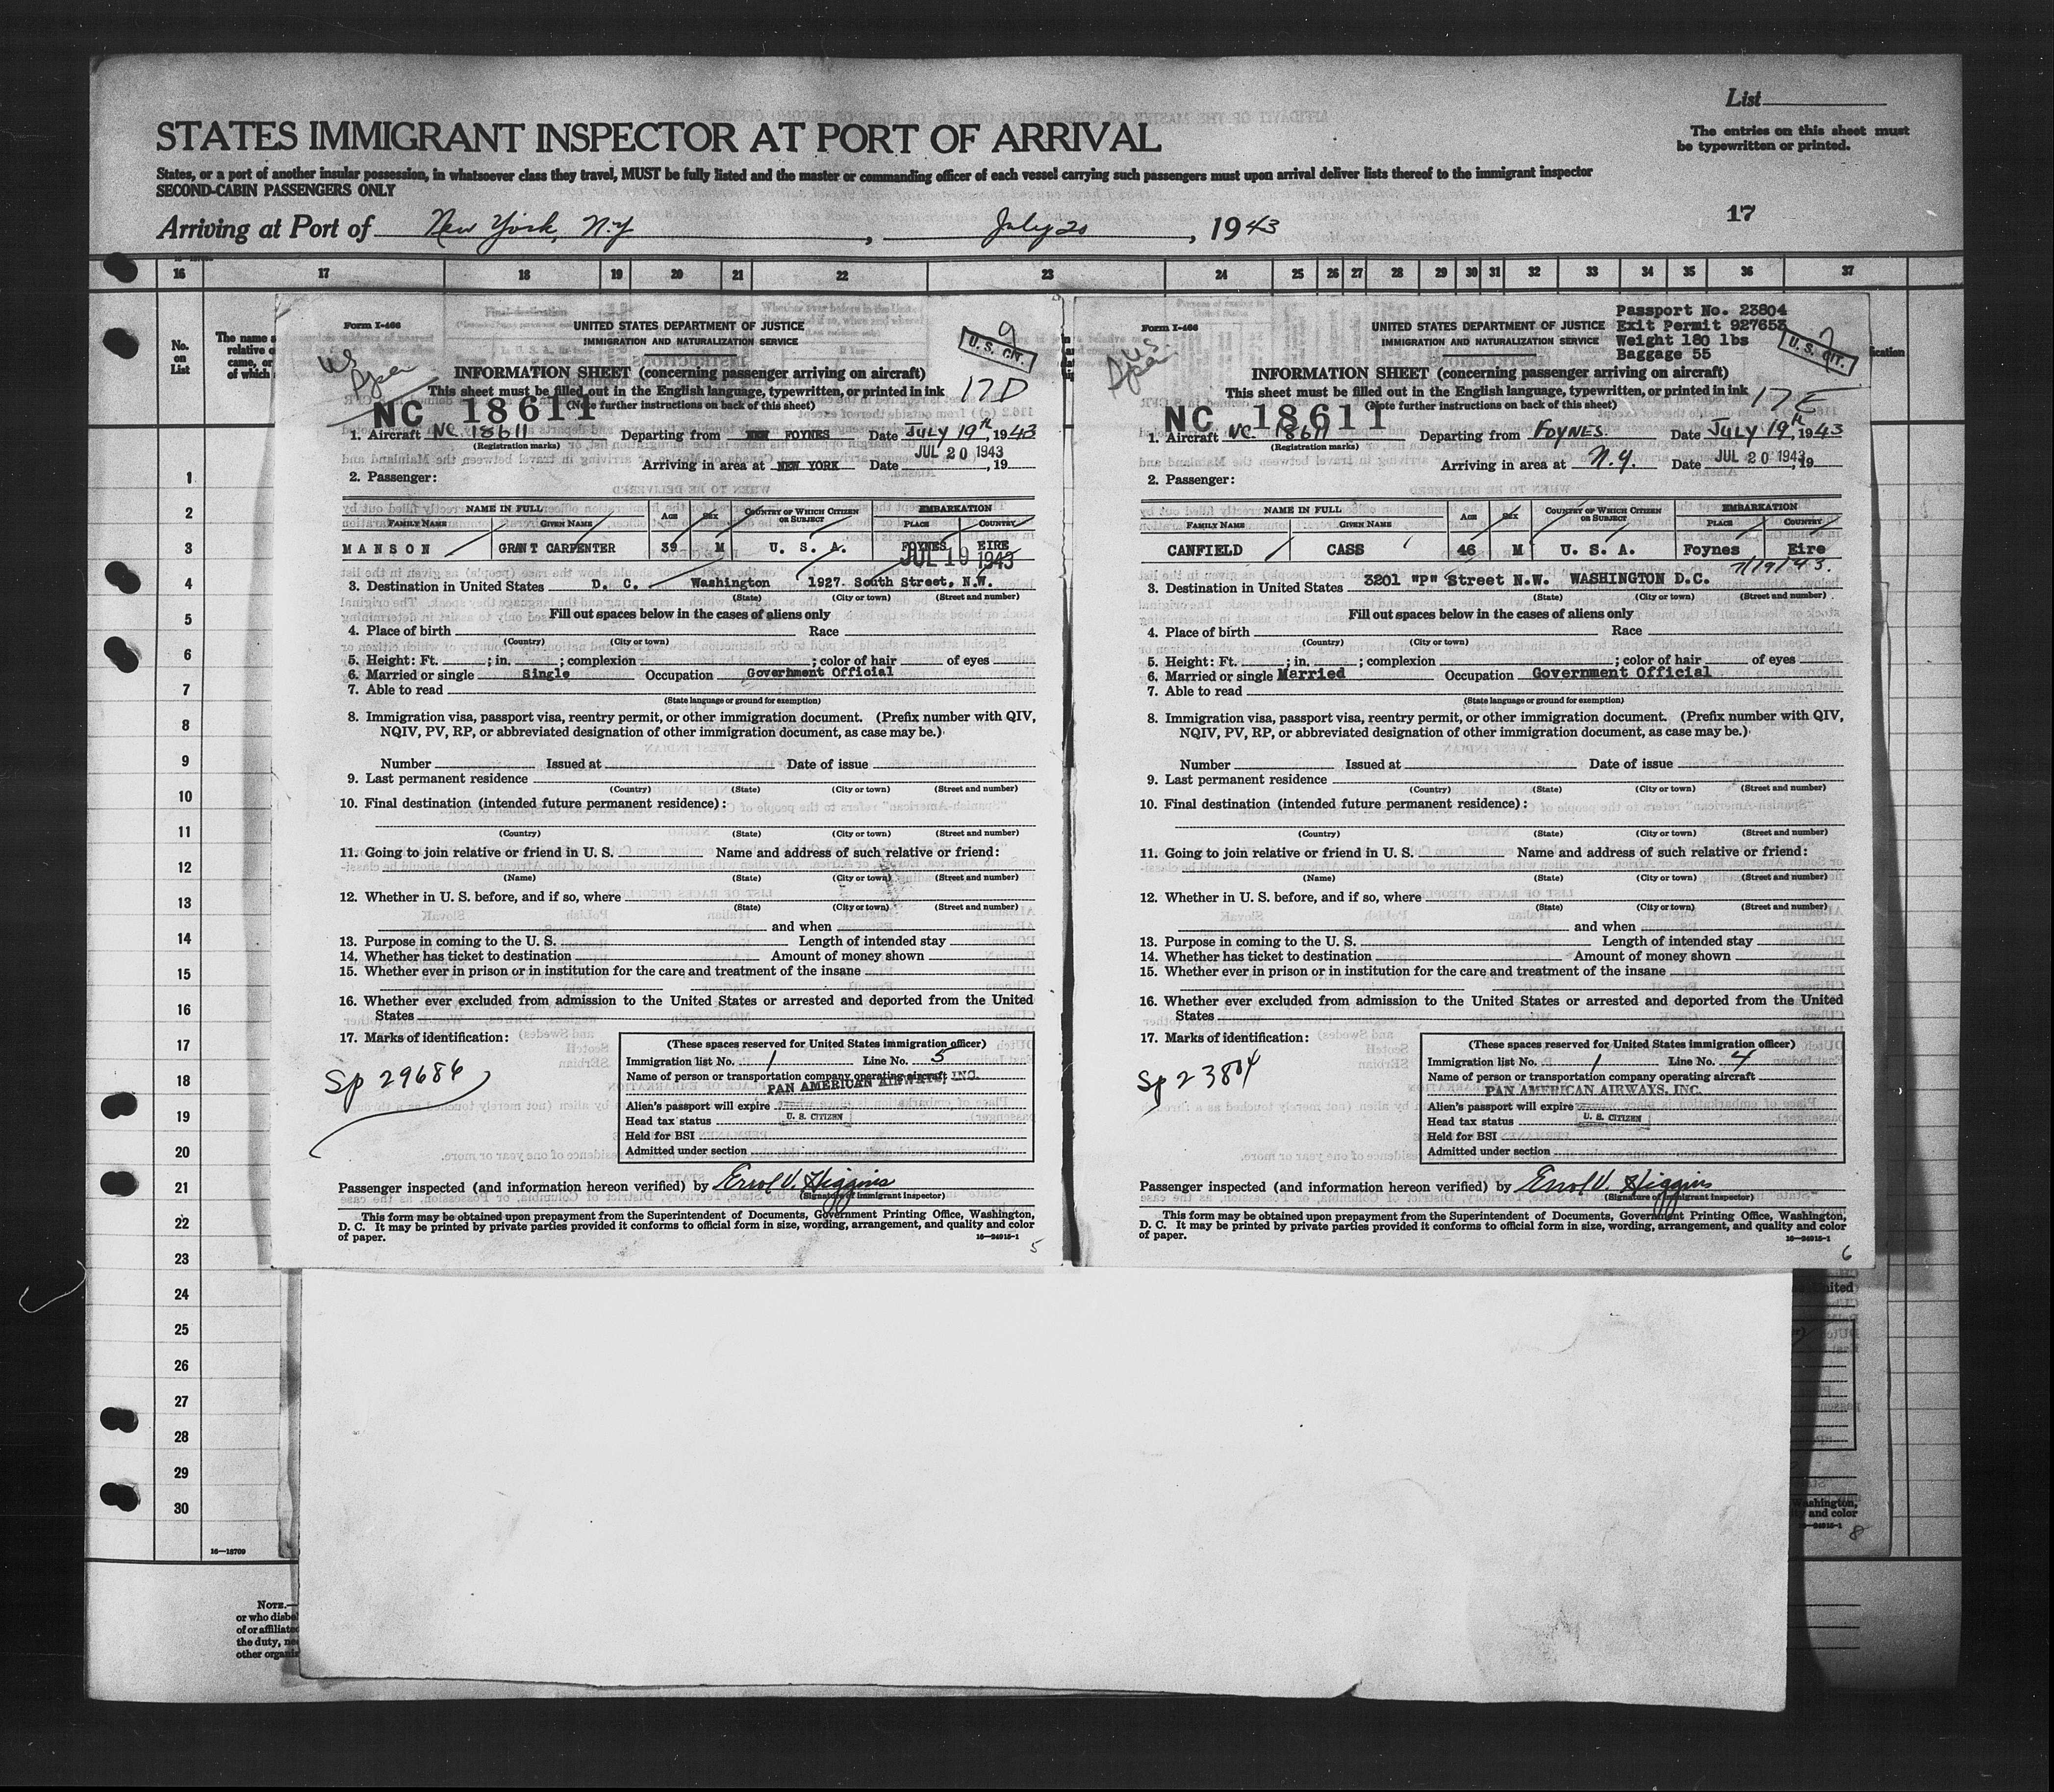 List
STATES IMMIGRANT INSPECTOR AT PORT OF ARRIVAL
The entries on this sheet must
be typewritten or printed.
States, or a port of another insular possession, in whatsoever class they travel, MUST be fully listed and the master or commanding officer of each vessel carrying such passengers must upon arrival deliver lists thereof to the immigrant inspector
SECOND-CABIN PASSENGERS ONLY
17
Arriving at Port of New York, N.Y , July 20 , 1943
16 17 18 19 20 21 22 23 24 25 26 27 28 29 30 31 32 33 34 35 36 37
No.
on
List
The name
relative o
came, or
of which
1
2
3
4
5
6
7
8
9
10
11
12
13
14
15
16
17
18
19
20
21
22
23
24
25
26
27
28
29
30
16—18709
NOTE.—
or who disbe
of or affiliated
the duty, ne
other organi
Form I-466
UNITED STATES DEPARTMENT OF JUSTICE
IMMIGRATION AND NATURALIZATION SERVICE
9
U. S. CIT.
INFORMATION SHEET (concerning passenger arriving on aircraft)
This sheet must be filled out in the English language, typewritten, or printed in ink
17D
(Note further instructions on back of this sheet)
NC 18611
1. Aircraft NC 18611 Departing from FOYNES Date JULY 19th, 1943
(Registration marks)
JUL 20 1943
Arriving in area at NEW YORK Date , 19
2. Passenger:
NAME IN FULL AGE SEX COUNTRY OF WHICH CITIZEN OR SUBJECT EMBARKATION
FAMILY NAME GIVEN NAME PLACE COUNTRY
MANSON GRANT CARPENTER 39 M U. S. A. FOYNES EIRE
JUL 19 1943
3. Destination in United States D. C. Washington 1927 South Street, N.W.
(State) (City or town) (Street and number)
Fill out spaces below in the cases of aliens only
4. Place of birth Race
(Country) (City or town)
5. Height: Ft. ; in. ; complexion ; color of hair of eyes
6. Married or single Single Occupation Government Official
7. Able to read
(State language or ground for exemption)
8. Immigration visa, passport visa, reentry permit, or other immigration document. (Prefix number with QIV,
NQIV, PV, RP, or abbreviated designation of other immigration document, as case may be.)
Number Issued at Date of issue
9. Last permanent residence
(Country) (State) (City or town) (Street and number)
10. Final destination (intended future permanent residence):
(Country) (State) (City or town) (Street and number)
11. Going to join relative or friend in U. S. Name and address of such relative or friend:
(Name) (State) (City or town) (Street and number)
12. Whether in U. S. before, and if so, where
(State) (City or town) (Street and number)
and when
13. Purpose in coming to the U. S. Length of intended stay
14. Whether has ticket to destination Amount of money shown
15. Whether ever in prison or in institution for the care and treatment of the insane
16. Whether ever excluded from admission to the United States or arrested and deported from the United
States
17. Marks of identification:
Sp 29686
(These spaces reserved for United States immigration officer)
Immigration list No. 1 Line No. 5
Name of person or transportation company operating aircraft
PAN AMERICAN AIRWAYS, INC.
Alien's passport will expire
U. S. CITIZEN
Head tax status
Held for BSI
Admitted under section
Passenger inspected (and information hereon verified) by Errol V. Higgins
(Signature of immigrant inspector)
This form may be obtained upon prepayment from the Superintendent of Documents, Government Printing Office, Washington,
D. C. It may be printed by private parties provided it conforms to official form in size, wording, arrangement, and quality and color
of paper.
16—24915-1
5
Form I-466
Passport No. 23804
Exit Permit 927653
Weight 180 lbs
Baggage 55
UNITED STATES DEPARTMENT OF JUSTICE
IMMIGRATION AND NATURALIZATION SERVICE
U. S. CIT.
INFORMATION SHEET (concerning passenger arriving on aircraft)
This sheet must be filled out in the English language, typewritten, or printed in ink
17E
(Note further instructions on back of this sheet)
NC 18611
1. Aircraft NC 18611 Departing from FOYNES. Date JULY 19th, 1943
(Registration marks)
JUL 20 1943
Arriving in area at N.Y. Date , 19
2. Passenger:
NAME IN FULL AGE SEX COUNTRY OF WHICH CITIZEN OR SUBJECT EMBARKATION
FAMILY NAME GIVEN NAME PLACE COUNTRY
CANFIELD CASS 46 M U. S. A. Foynes Eire
7/19/43.
3. Destination in United States 3201 "P" Street N.W. WASHINGTON D.C.
(State) (City or town) (Street and number)
Fill out spaces below in the cases of aliens only
4. Place of birth Race
(Country) (City or town)
5. Height: Ft. ; in. ; complexion ; color of hair of eyes
6. Married or single Married Occupation Government Official
7. Able to read
(State language or ground for exemption)
8. Immigration visa, passport visa, reentry permit, or other immigration document. (Prefix number with QIV,
NQIV, PV, RP, or abbreviated designation of other immigration document, as case may be.)
Number Issued at Date of issue
9. Last permanent residence
(Country) (State) (City or town) (Street and number)
10. Final destination (intended future permanent residence):
(Country) (State) (City or town) (Street and number)
11. Going to join relative or friend in U. S. Name and address of such relative or friend:
(Name) (State) (City or town) (Street and number)
12. Whether in U. S. before, and if so, where
(State) (City or town) (Street and number)
and when
13. Purpose in coming to the U. S. Length of intended stay
14. Whether has ticket to destination Amount of money shown
15. Whether ever in prison or in institution for the care and treatment of the insane
16. Whether ever excluded from admission to the United States or arrested and deported from the United
States
17. Marks of identification:
Sp 23804
(These spaces reserved for United States immigration officer)
Immigration list No. 1 Line No. 4
Name of person or transportation company operating aircraft
PAN AMERICAN AIRWAYS, INC.
Alien's passport will expire
U. S. CITIZEN
Head tax status
Held for BSI
Admitted under section
Passenger inspected (and information hereon verified) by Errol V. Higgins
(Signature of immigrant inspector)
This form may be obtained upon prepayment from the Superintendent of Documents, Government Printing Office, Washington,
D. C. It may be printed by private parties provided it conforms to official form in size, wording, arrangement, and quality and color
of paper.
16—24915-1
6
Washington,
and color
16—24915-1
8